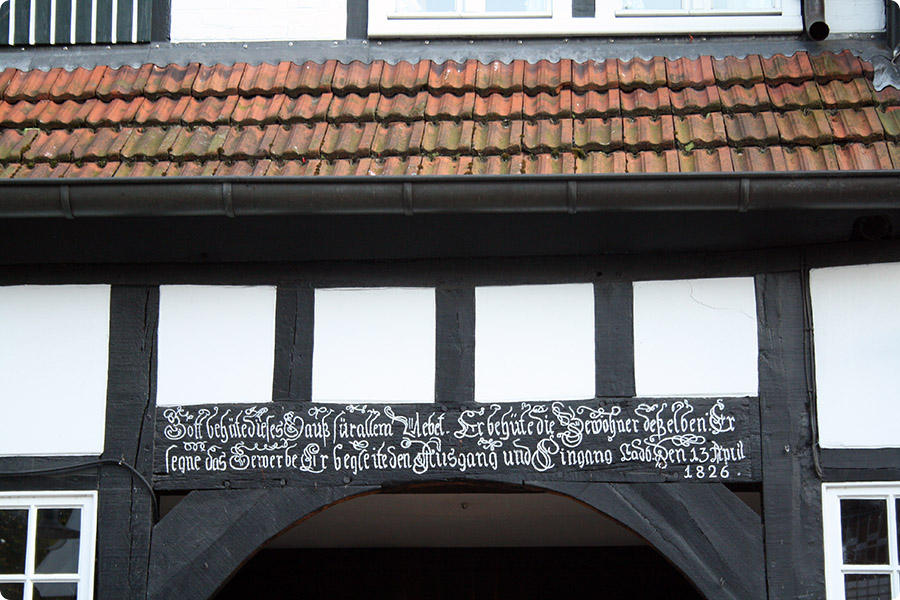 Gott behüte dieses Hauß für allem Uebel. Er behüte die Bewohner deßelben Er
segne das Gewerbe Er begleite den Ausgang und Eingang Ladb. Den 13 April
1826.